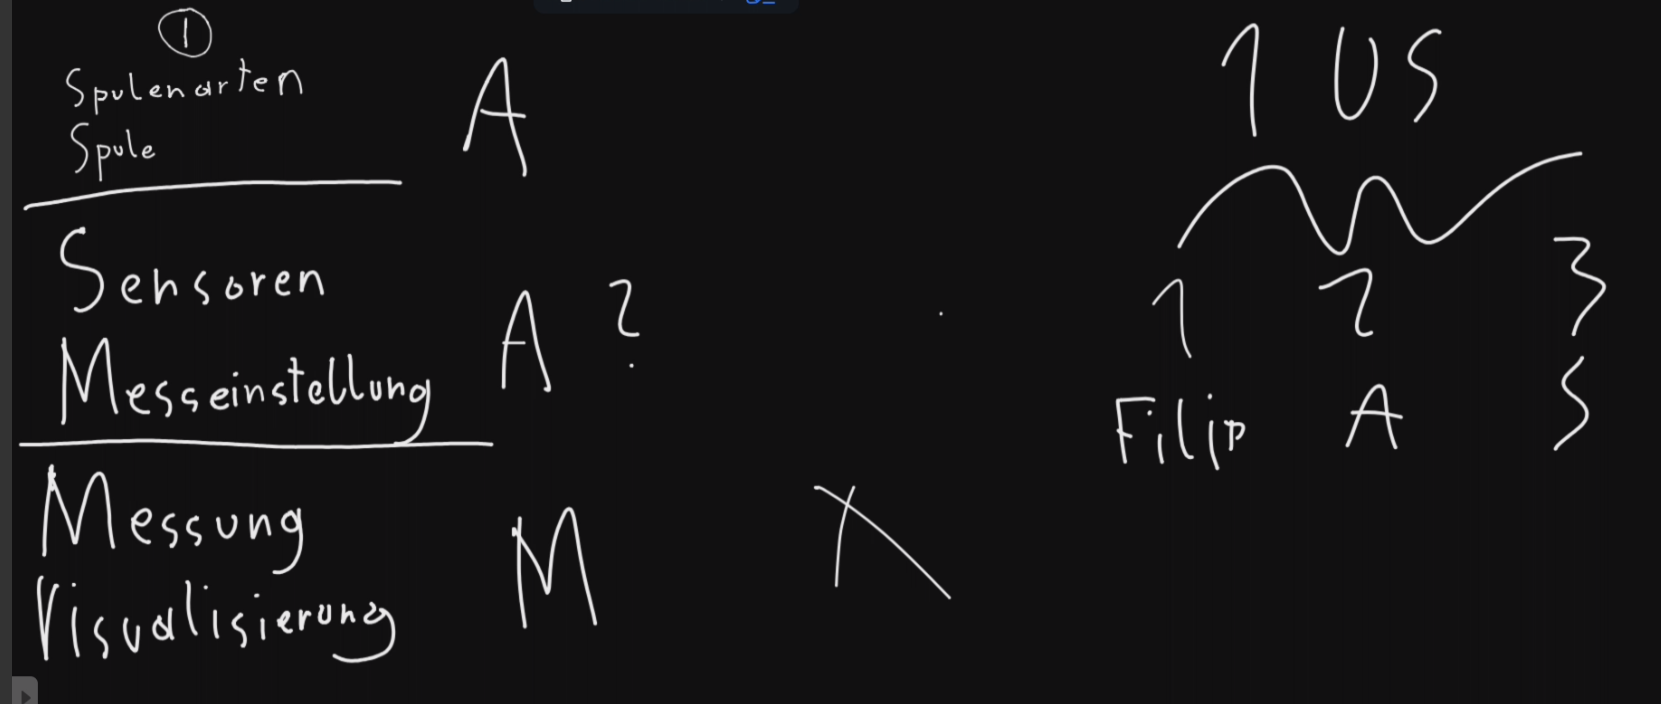 1
Spulenarten
Spule
A
Sensoren
Messeinstellung
A ?
Messung
Visualisierung
M
1 US
1 2 3
Filip A S